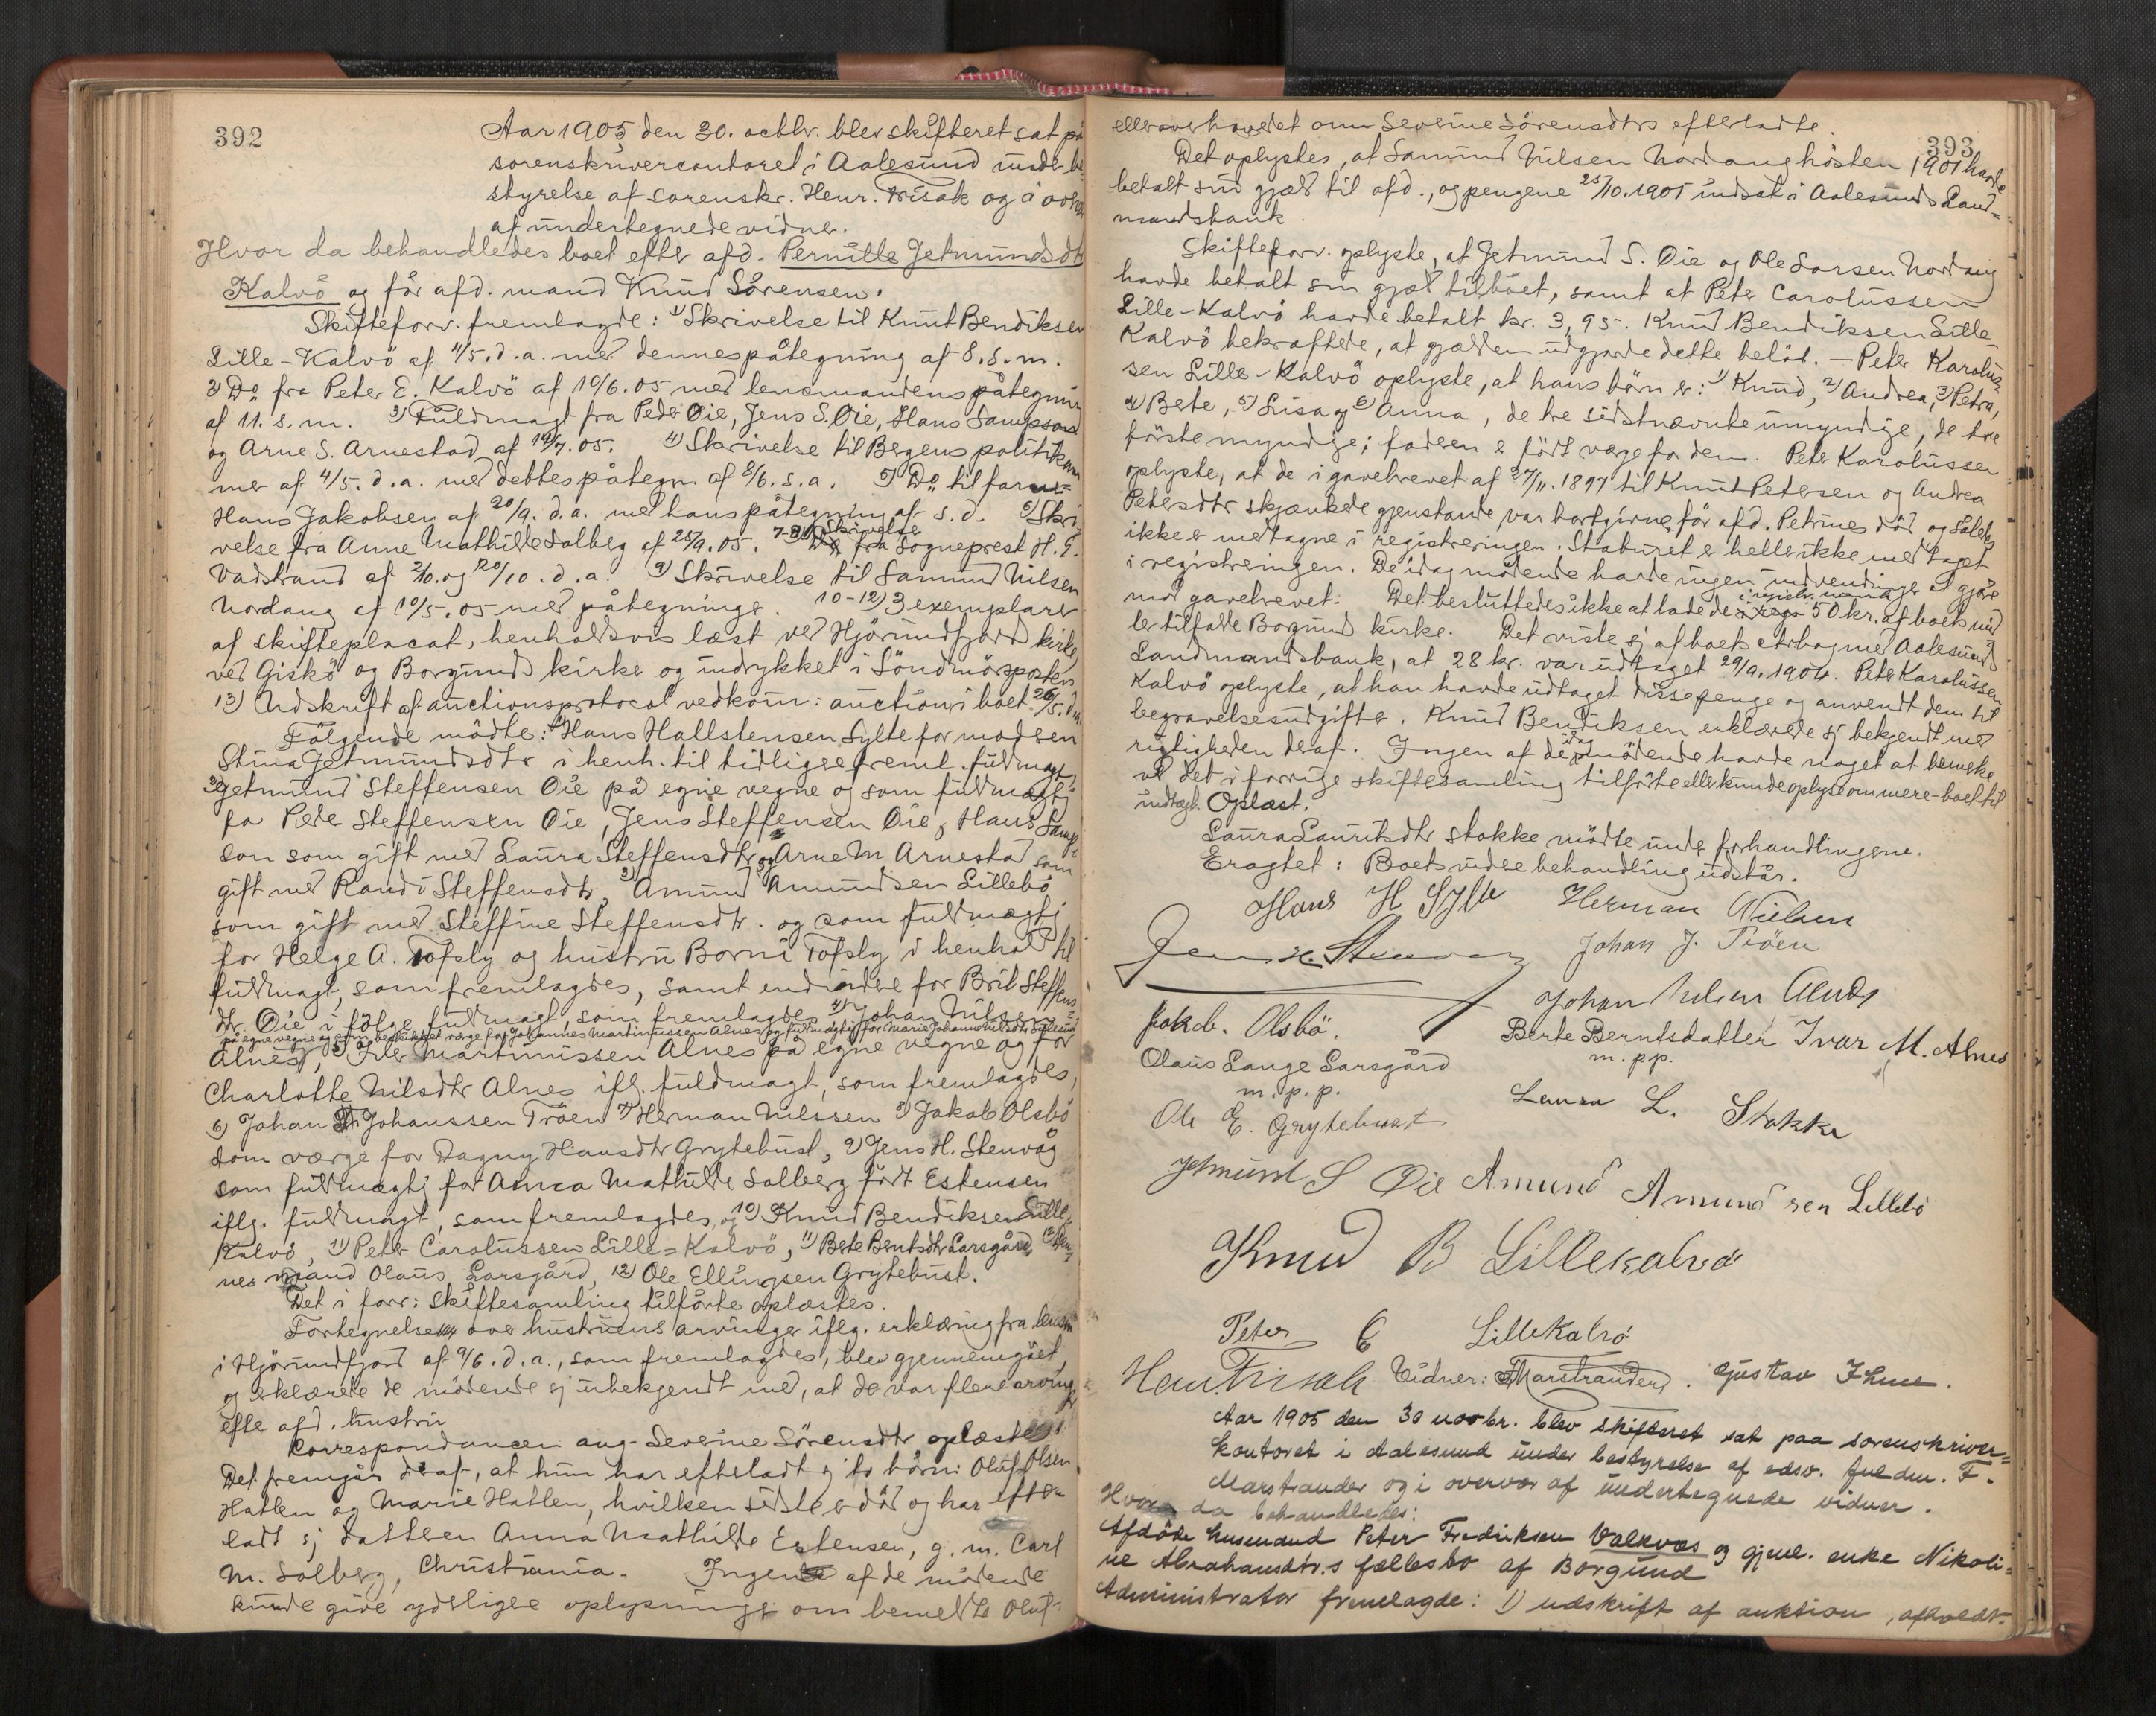 392
Aar 1905 den 30. octbr. blev skifteret sat på
sorenskrivercontoret i Aalesund under be-
styrelse af sorenskr. Henr. Frisak og i
af undertegnede vidner.
Hvor da behandledes boet efter afd. Pernille Jetmundsdtr
Kalvö og før afd. mand Knud Sörensen.
Skifteforv. fremlagde: 1) Skrivelse til Knut Bendiksen
Lille-Kalvö af 4/5. d. a. med dennes påtegning af 8. s. m.
2) Do fra Peter E. Kalvö af 10/6. 05 med lensmandens påtegning
af 11. s. m. 3) Fuldmagt fra Peder Öie, Jens S. Öie, Hans Sampson
og Arne S. Arnestad af 14/7. 05. 4) Skrivelse til Bergens politikam
mer af 4/5. d. a. med dettes påtegn. af 8/6. s. a. 5) Do til
Hans Jakobsen af 20/9. d. a. med hans påtegning af s. d. 6) Skri
velse fra Anne Mathilde Solberg af 25/9. 05. 7-8) Skrivelse fra Sogneprest H. G.
Vadstrand af 2/10. og 20/10. d. a. 9) Skrivelse til Samund Nilsen
Nordang af 10/5. 05 med påtegninger. 10-12) 3 exemplarer
af skifteplacat, henholdsvis læst ved Hjörundfjord kirke,
ved Giskö og Borgund kirke og indrykket i Söndmörsposten
13) Udskrift af auctionsprotocol vedkom: auction i boet 26/5. d.
Fölgende mödte: 1) Hans Hallstensen Sylte for modsen
Stina Jetmundsdtr i henh. til tidligere freml. fuldmagt
2) Jetmund Steffensen Öie på egne vegne og som fuldmægtig
for Peder Steffensen Öie, Jens Steffensen Öie, Hans Samp
son som gift med Laura Steffensdtr og Arne M. Arnestad som
gift med Randi Steffensdtr, 3) Amund Amundsen Lillebö
som gift med Steffine Steffensdtr. og som fuldmægtig
for Helge A. Tofsly og hustru Borni Tofsly i henhold til
fuldmagt, som fremlagdes, samt endvidere for Brit Steffens
dtr. Öie i fölge fuldmagt, som fremlagdes 4) Johan Nilsen
på egne vegne og som beskikket værge for Johannes Martinussen Alnes og fuldmægtig for Marie Johanne
Alnes, 5) Iver Martinussen Alnes på egne vegne og for
Charlotte Nilsdtr Alnes iflg. fuldmagt, som fremlagdes,
6) Johan Johanssen Tröen 7) Herman Nilssen 8) Jakob Olsbö
som værge for Dagny Hansdtr Grytebust, 9) Jens H. Stenvåg
som fuldmægtig for Anna Mathilde Solberg født Estensen
iflg. fuldmagt, som fremlagdes, og 10) Knud Bendiksen Lille-
Kalvö, 11) Peter Carolussen Lille-Kalvö, 11) Bete Berntsdtr Larsgård,
nes mand Olaus Larsgård, 12) Ole Ellingsen Grytebust.
Det i forr: skiftesamling tilförte oplæstes.
Fortegnelse over hustruens arvinger iflg. erklæring fra lensm
i Hjörundfjord af 9/6. d. a., som fremlagdes, blev gjennemgået,
og erklærede de mödende sig ubekjendt med, at der var flere arvinger
efter afd. hustru
Correspondancen ang. Severine Sörensdtr oplæstes.
Det fremgår deraf, at hun har efterladt sig to børn: Oluf Olsen
Hatlen og Marie Hatlen, hvilken sidste er död og har efter-
ladt sig datteren Anna Mathilde Estensen, g. m. Carl
M. Solberg, Christiania. Ingen af de mödende
kunde give yderligere oplysninger om bemeldte Oluf
393
eller overhovedet om Severine Sörensdtrs efterladte.
Det oplystes, at Samund Nilsen Nordang hösten 1901 havde
betalt sin gjæld til afd., og pengene 25/10. 1901 indsat i Aalesunds Land-
mandsbank.
Skifteforv. oplyste, at Jetmund S. Öie og Ole Larsen Nordang
havde betalt sin gjæld til boet, samt at Peter Carolussen
Lille-Kalvö havde betalt kr. 3,95. Knud Bendiksen Lille-
Kalvö bekræftede, at gjælden udgjorde dette belöb. — Peter Karolus
sen Lille-Kalvö oplyste, at hans börn er: 1) Knud, 2) Andrea, 3) Petra,
4) Bete, 5) Lisa og 6) Anna, de tre sidstnævnte umyndige, de tre
förste myndige; faderen er född værge for dem. Peter Karolussen
oplyste, at de i gavebrevet af 27/11. 1897 til Knut Petersen og Andrea
Petersdtr skjænkede gjenstande var bortgivne för afd. Petrines död og således
ikke er medtagne i registreringen. Staburet er heller ikke medtaget
i registreringen. De idag mödende havde ingen indvendinger at gjöre
mod gavebrevet. Det besluttedes ikke at lade de 50 kr. af boets mid
ler tilfalde Borgund kirke. Det viste sig af boets med Aalesunds
Landmandsbank, at 28 kr. var udtaget 29/9. 1904. Peter Karolussen
Kalvö oplyste, at han havde udtaget disse penge og anvendt dem til
begravelsesudgifter. Knud Bendiksen erklærede sig bekjendt med
rigtigheden deraf. Ingen af de idag mödende havde noget at bemerke
ved det i forrige skiftesamling tilförte eller kunde oplyse om mere boet til
indtægt. Oplæst.
Laura Lauritsdtr Stokke mödte under forhandlingene.
Eragtet: Boets videre behandling udstår.
Hans H Sylte Herman Nielsen
Jens H. Stenvåg Johan J. Tröen
Johan Nilsen Alnes
Jakob. Olsbö. Berte Berntsdatter Ivar M. Alnes
m. p.p.
Olaus Lange Larsgård
m. p. p.
Laura L. Stokke
Ole E. Grytebust
Jetmund S Öie Amund Amundsen Lillebö
Knud B Lillekalvö
Peter C Lillekalvö
Henr. Frisak Vidner: F. Marstrander. Gustav
Aar 1905 den 30 novbr. blev skifteret sat paa sorenskriver-
kontoret i Aalesund under bestyrelse af edsv. fuldm. F.
Marstrander og i overvær af undertegnede vidner.
Hvor da behandledes:
Afdöde husmand Peter Fredriksen Valkvæs og gjenl. enke Nikoli-
ne Abrahamsdtr.s fællesbo af Borgund
Administrator fremlagde: 1) udskrift af auktion, afholdt